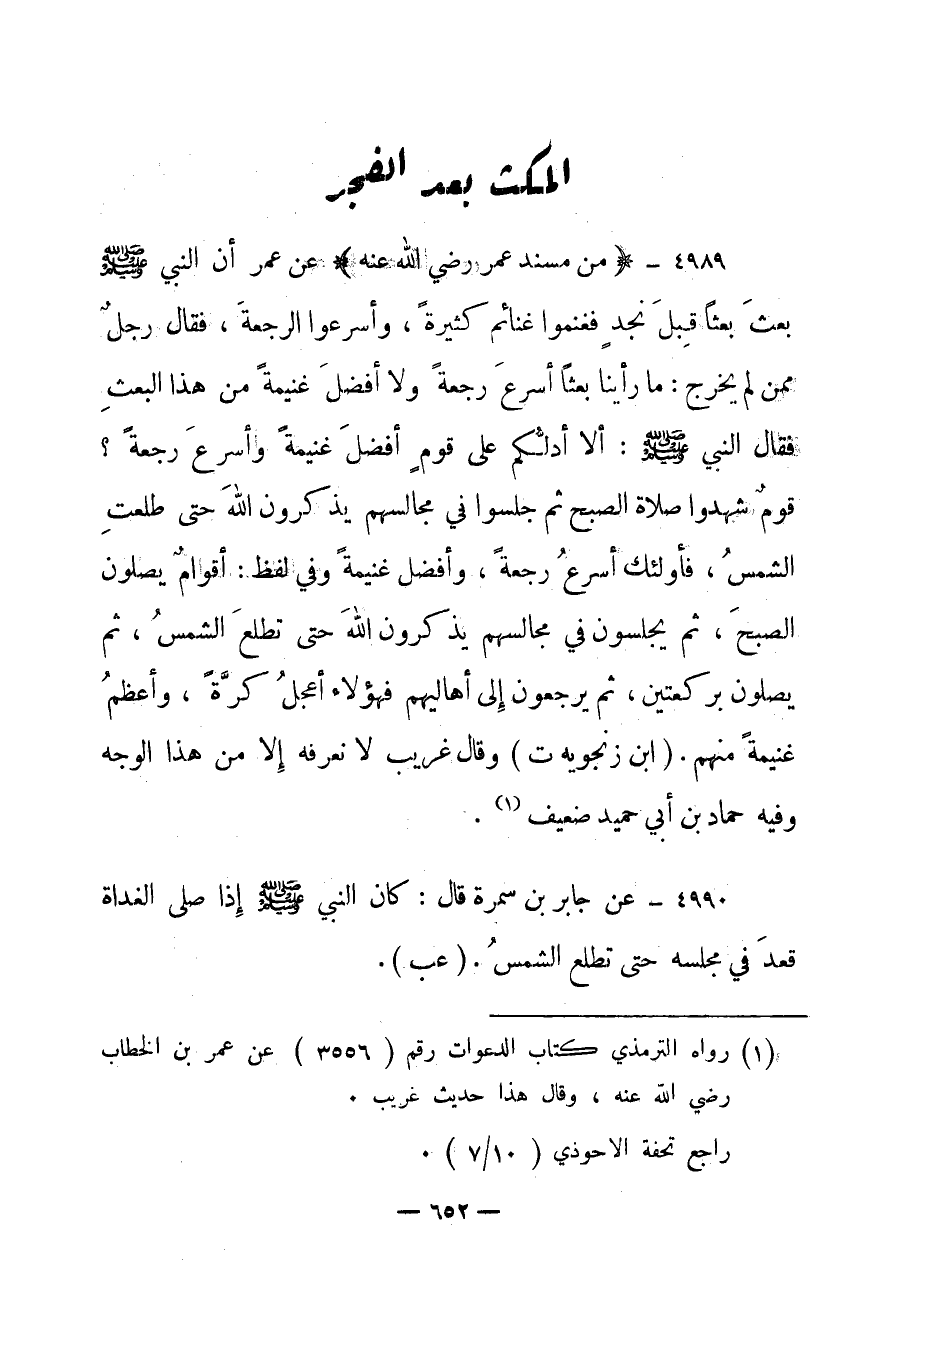 المكث بعد الفجر
٤٩٨٩ ـ ﴿ من مسند عمر رضي الله عنه ﴾ عن عمر أن النبي ﷺ
بعثَ بعثاً قِبلَ نجدٍ فغنموا غنائم كثيرةً ، وأسرعوا الرجعةَ ، فقال رجلٌ
ممن لم يخرج : ما رأينا بعثاً أسرعَ رجعةً ولا أفضلَ غنيمةً من هذا البعثِ
فقال النبي ﷺ : ألا أدلُّكم على قومٍ أفضلَ غنيمةً وأسرعَ رجعةً ؟
قومٌ شهدوا صلاة الصبح ثم جلسوا في مجالسهم يذكرون اللهَ حتى طلعتِ
الشمسُ ، فأولئك أسرعُ رجعةً ، وأفضل غنيمةً وفي لفظ : أقوامٌ يصلون
الصبحَ ، ثم يجلسون في مجالسهم يذكرون اللهَ حتى تطلعَ الشمسُ ، ثم
يصلون بركعتين ، ثم يرجعون إلى أهاليهم فهؤلاء أعجلُ كرَّةً ، وأعظمُ
غنيمةً منهم . ( ابن زنجويه ت ) وقال غريب لا نعرفه إلا من هذا الوجه
وفيه حماد بن أبي حميد ضعيف (١) .
٤٩٩٠ ـ عن جابر بن سمرة قال : كان النبي ﷺ إذا صلى الغداة
قعدَ في مجلسه حتى تطلع الشمسُ . ( عب ) .
(١) رواه الترمذي كتاب الدعوات رقم ( ٣٥٥٦ ) عن عمر بن الخطاب
رضي الله عنه ، وقال هذا حديث غريب .
راجع تحفة الاحوذي ( ٧/١٠ ) .
— ٦٥٢ —